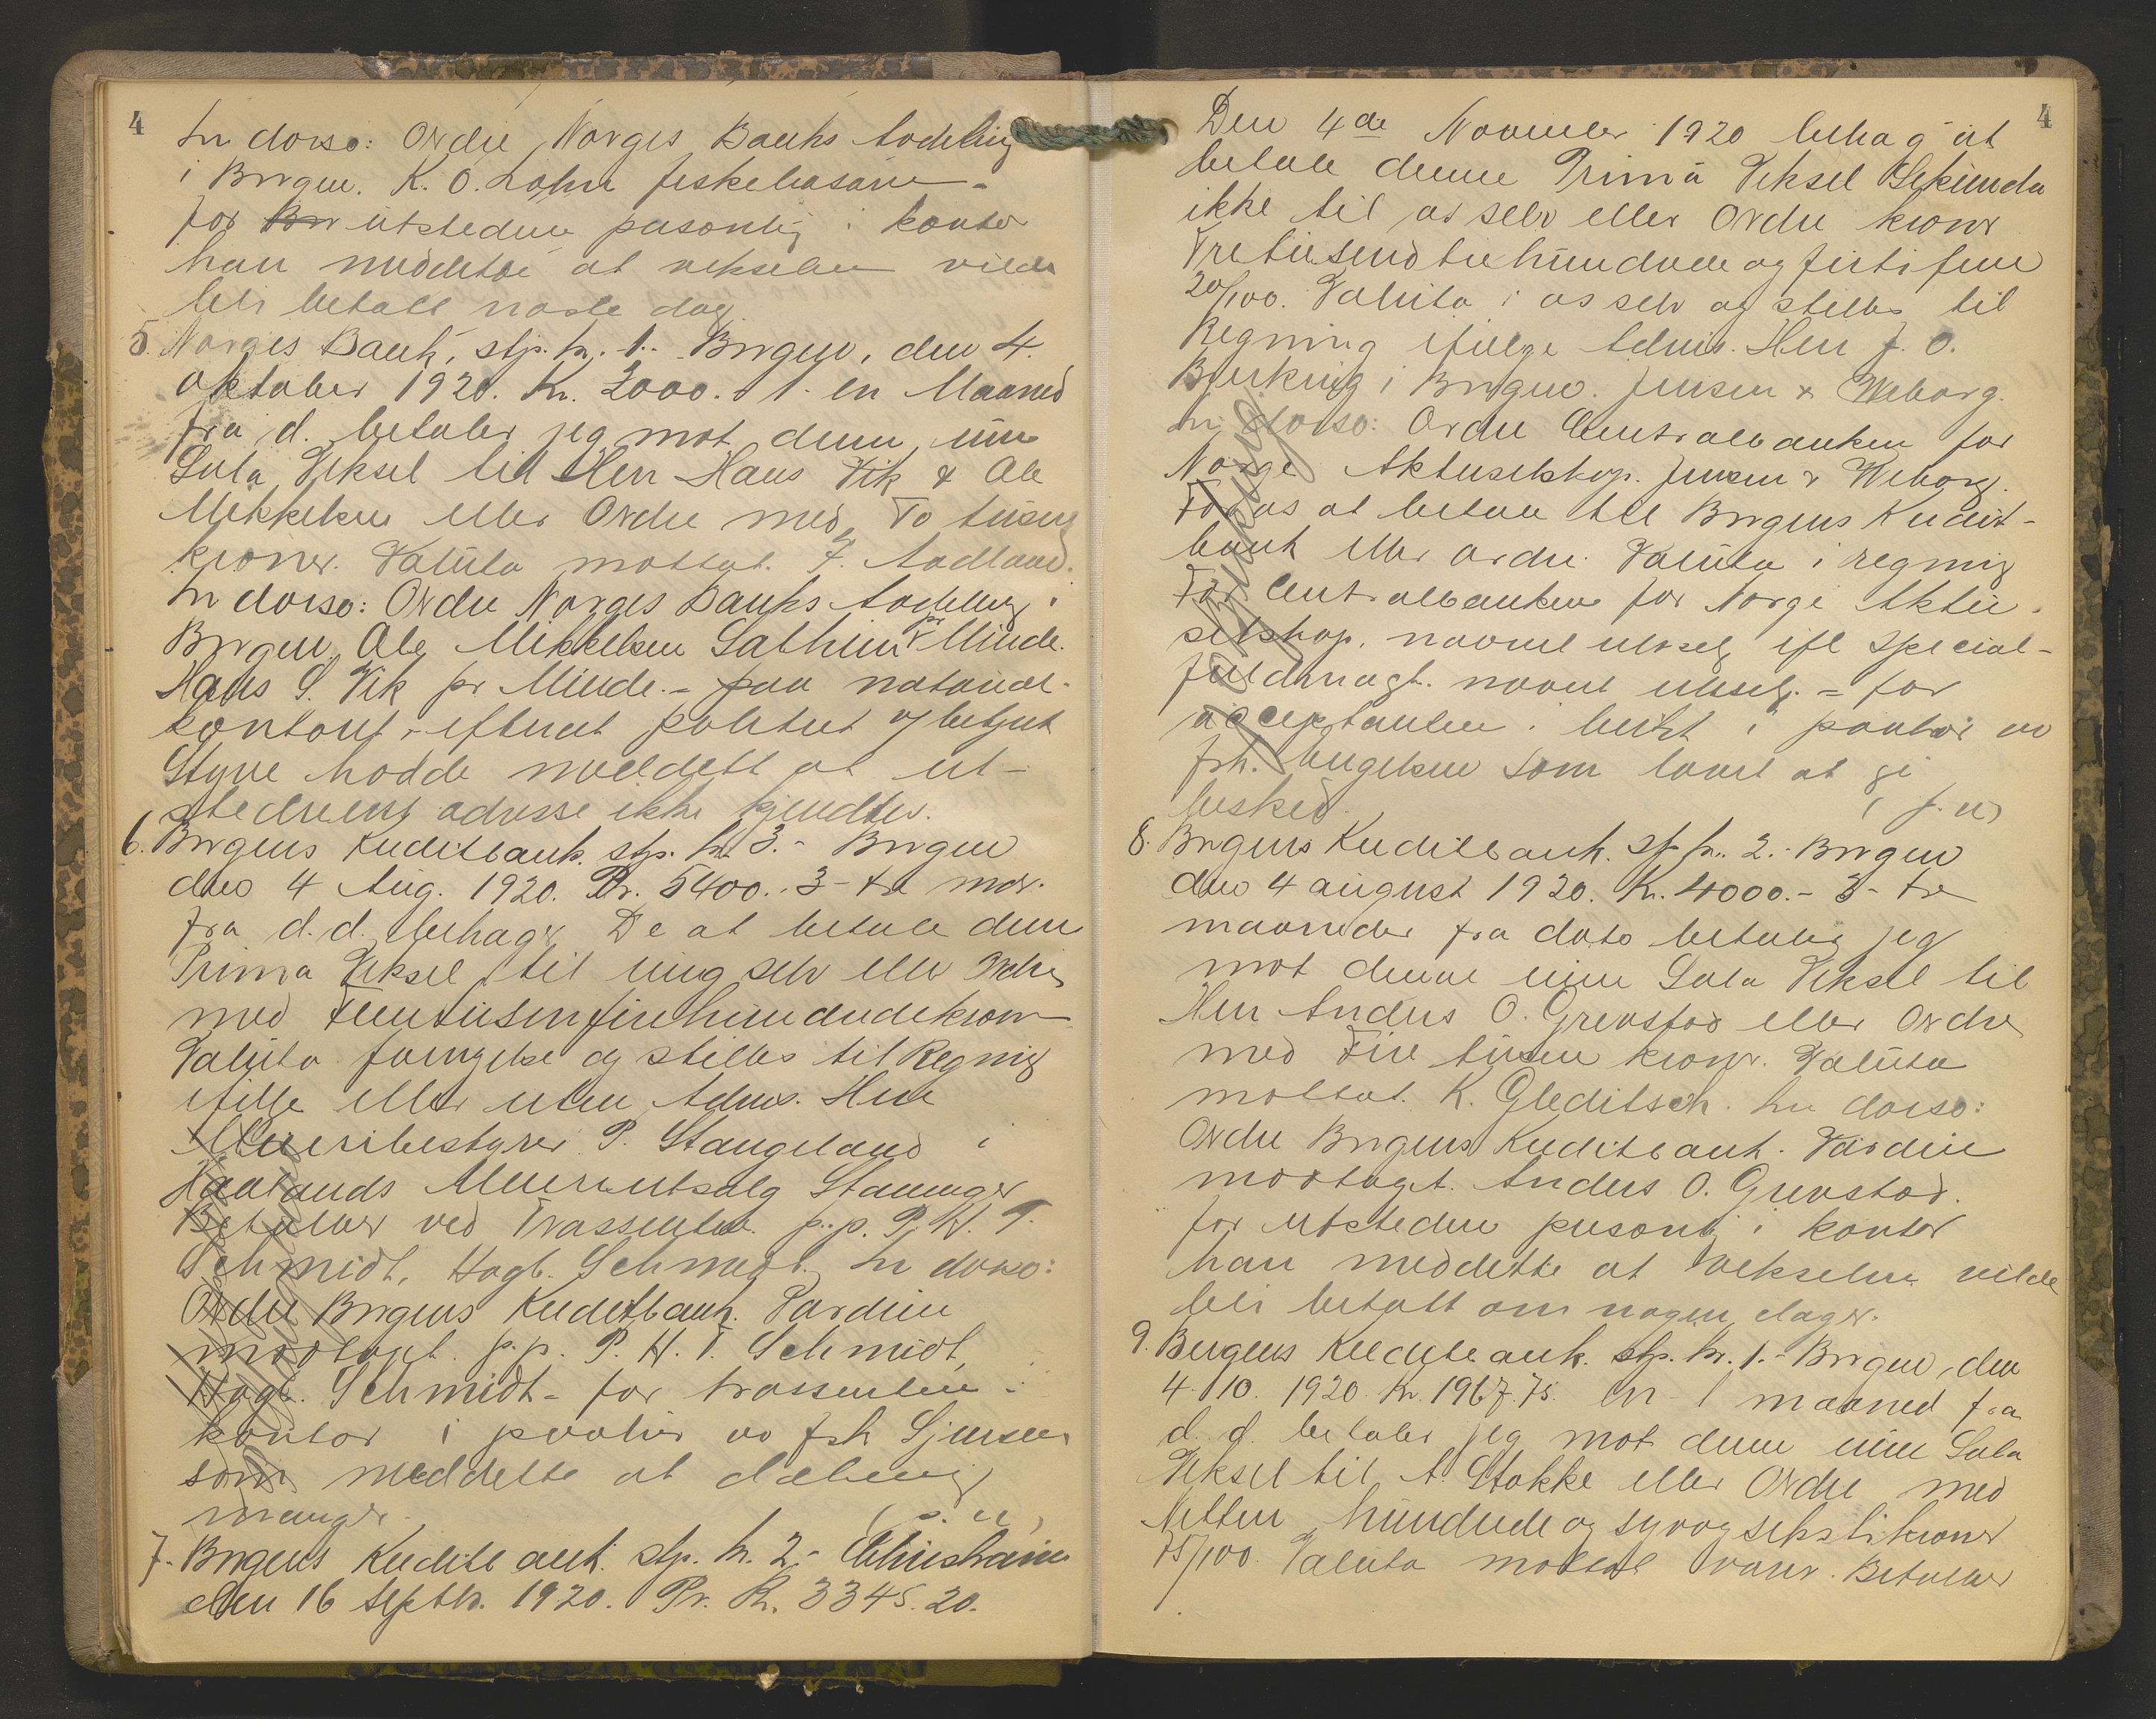 4
In dorso: Ordre Norges Banks Avdeling
i Bergen. K. O. fiskehasarie -
for utstederen personlig i kontor
han meddelte at vekselen vilde
bli betalt næste dag.
5. Norges Bank, stp. kr. 1.- Bergen, den 4.
oktober 1920. Kr. 2000. 1. en Maaned
fra d. betaler jeg mot denne min
Sola Veksel til Herr Hans Vik & Ole
Mikkelsen eller Ordre med To tusen
kroner. Valuta mottat. F. Aadland.
In dorso: Ordre Norges Banks Avdeling i
Bergen, Ole Mikkelsen Minde.
Hans S. Vik pr Minde. - paa notarial-
kontoret, efterat politiet v/ betjent
Styve hadde meddelt at ut-
stederens adresse ikke kjendtes.
6. Bergens Kreditbank. stp. kr. 3.- Bergen
den 4 Aug. 1920. Pr. 5400. 3- tre mdr.
fra d.d. behager De at betale denne
Prima Veksel til mig selv eller Ordre
med Femtusenfirehundredekroner
Valuta og stilles til Regning
ifølge eller uten Advis. Herr
Meieribestyrer P. Stangeland i
Haalands Meieriutsalg Stavanger
Betalbar ved Trassenten. p.p. P. H. T.
Schmidt, Hagb. Schmidt. In dorso:
Ordre Bergens Kreditbank. Værdien
mottaget. p.p. P. H. T. Schmidt,
Hagb. Schmidt - for trassenten i
kontor i paahør av frk Sjursen
som meddelte at dækning
mangler. (s. u)
7. Bergens Kreditbank. stp. kr. 2.- Christiania
den 16 Septbr. 1920. Pr. Kr. 3345.20.
4
Den 4de November 1920 behag at
betale denne Prima Veksel Sekunda
ikke til os selv eller Ordre kroner
Tretusendtrehundrede og firtifem
20/100. Valuta i os selv og stilles til
Regning ifølge Advis. Herr J. O.
i Bergen. Jensen & Wiborg.
In dorso: Ordre Centralbanken for
Norge Aktieselskap. Jensen & Wiborg.
For os at betale til Bergens Kredit-
bank eller ordre. Valuta i regning
For Centralbanken for Norge Aktie-
selskap, navnet uleselig ifl special-
fuldmagt. navnet uleselig. - for
acceptanten i butik i paahør av
frk. Engelsen som lovet at gi
besked. (s. u)
8. Bergens Kreditbank. stp kr. 2.- Bergen
den 4 august 1920. Kr. 4000.- 3- tre
maaneder fra dato betaler jeg
mot denne min Sola Veksel til
Herr Anders O. Grevstad eller Ordre
med Fire tusen kroner. Valuta
mottat. K. Gleditsch. In dorso:
Ordre Bergens Kreditbank. Værdien
mottaget. Anders O. Grevstad.
for utstederen personlig i kontor
han meddelte at vekselen vilde
bli betalt om nogen dager.
9. Bergens Kreditbank. stp. kr. 1.- Bergen, den
4. 10. 1920. Kr. 1967.75. en - 1 maaned fra
d. d. betaler jeg mot denne min Sola
Veksel til A. Stokke eller Ordre med
Nitten hundrede og syvogsekstikroner
75/100. Valuta mottat varer. Betalbar